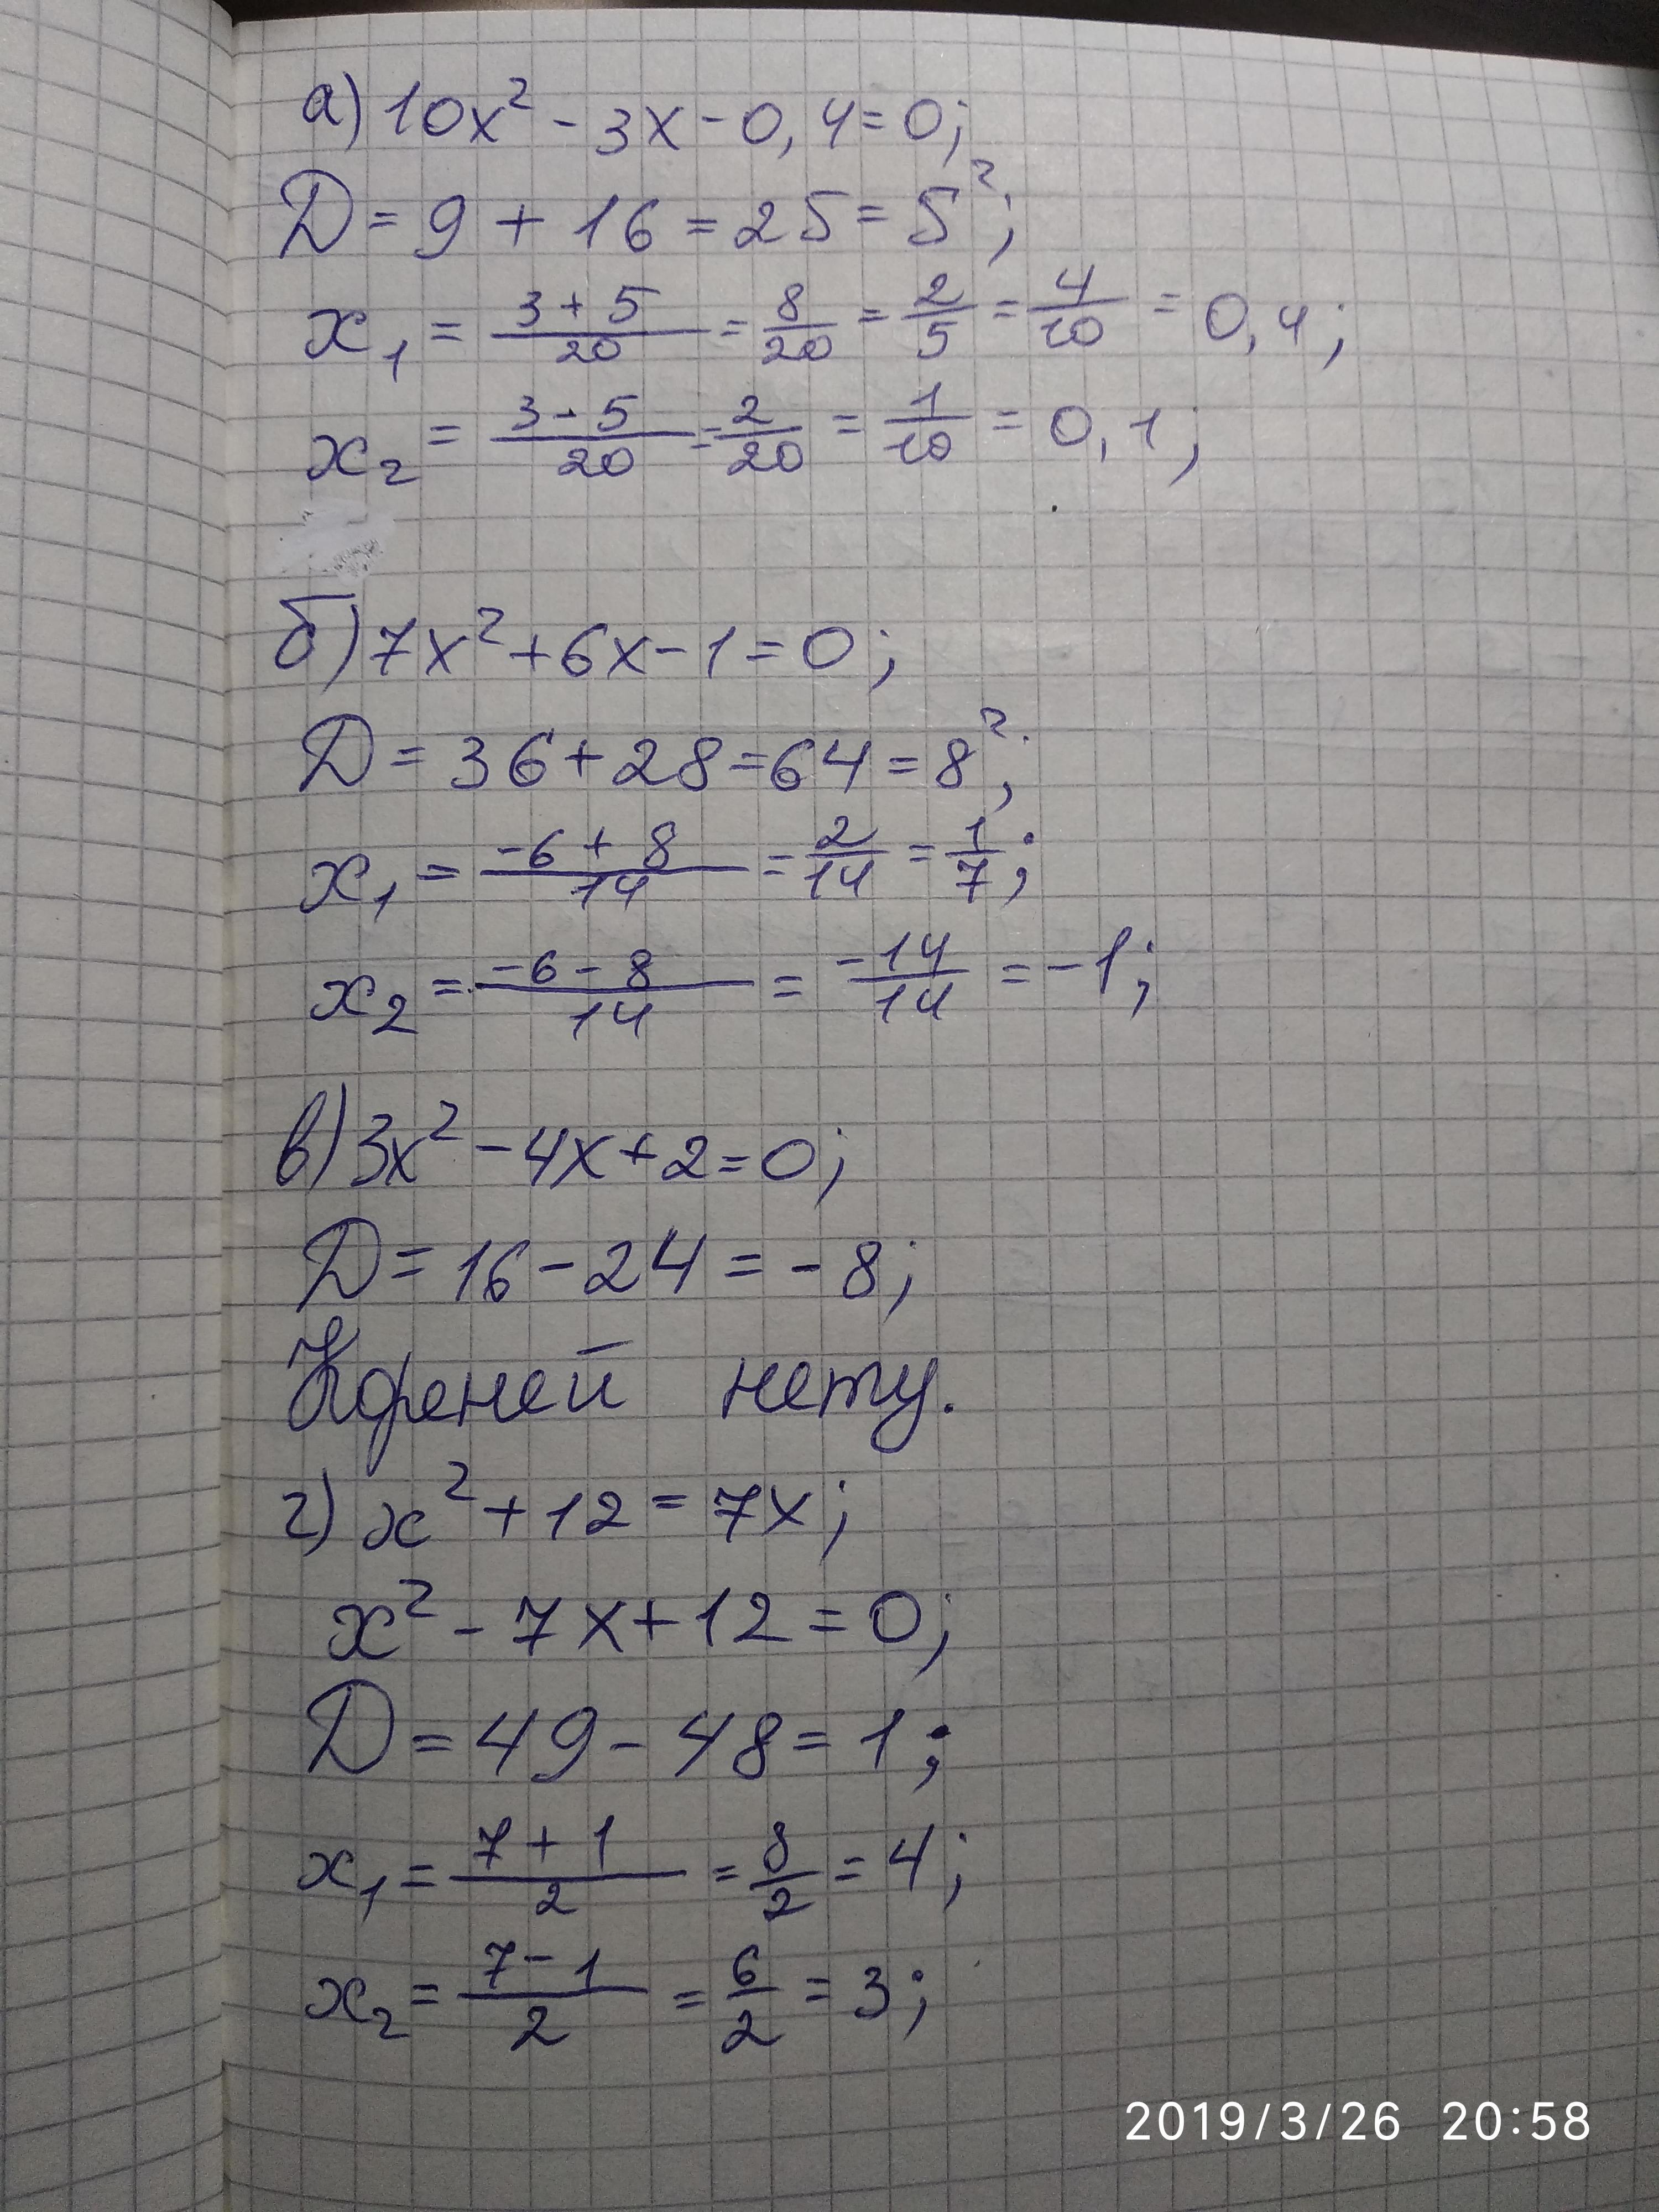 а) 10x² - 3x - 0,4 = 0;
D = 9 + 16 = 25 = 5²;
x₁ = (3 + 5)/20 = 8/20 = 2/5 = 4/10 = 0,4;
x₂ = (3 - 5)/20 = 2/20 = 1/10 = 0,1;
б) 7x² + 6x - 1 = 0;
D = 36 + 28 = 64 = 8²;
x₁ = (-6 + 8)/14 = 2/14 = 1/7;
x₂ = (-6 - 8)/14 = -14/14 = -1;
в) 3x² - 4x + 2 = 0;
D = 16 - 24 = -8;
Корней нету.
г) x² + 12 = 7x;
x² - 7x + 12 = 0;
D = 49 - 48 = 1;
x₁ = (7 + 1)/2 = 8/2 = 4;
x₂ = (7 - 1)/2 = 6/2 = 3;
2019/3/26 20:58